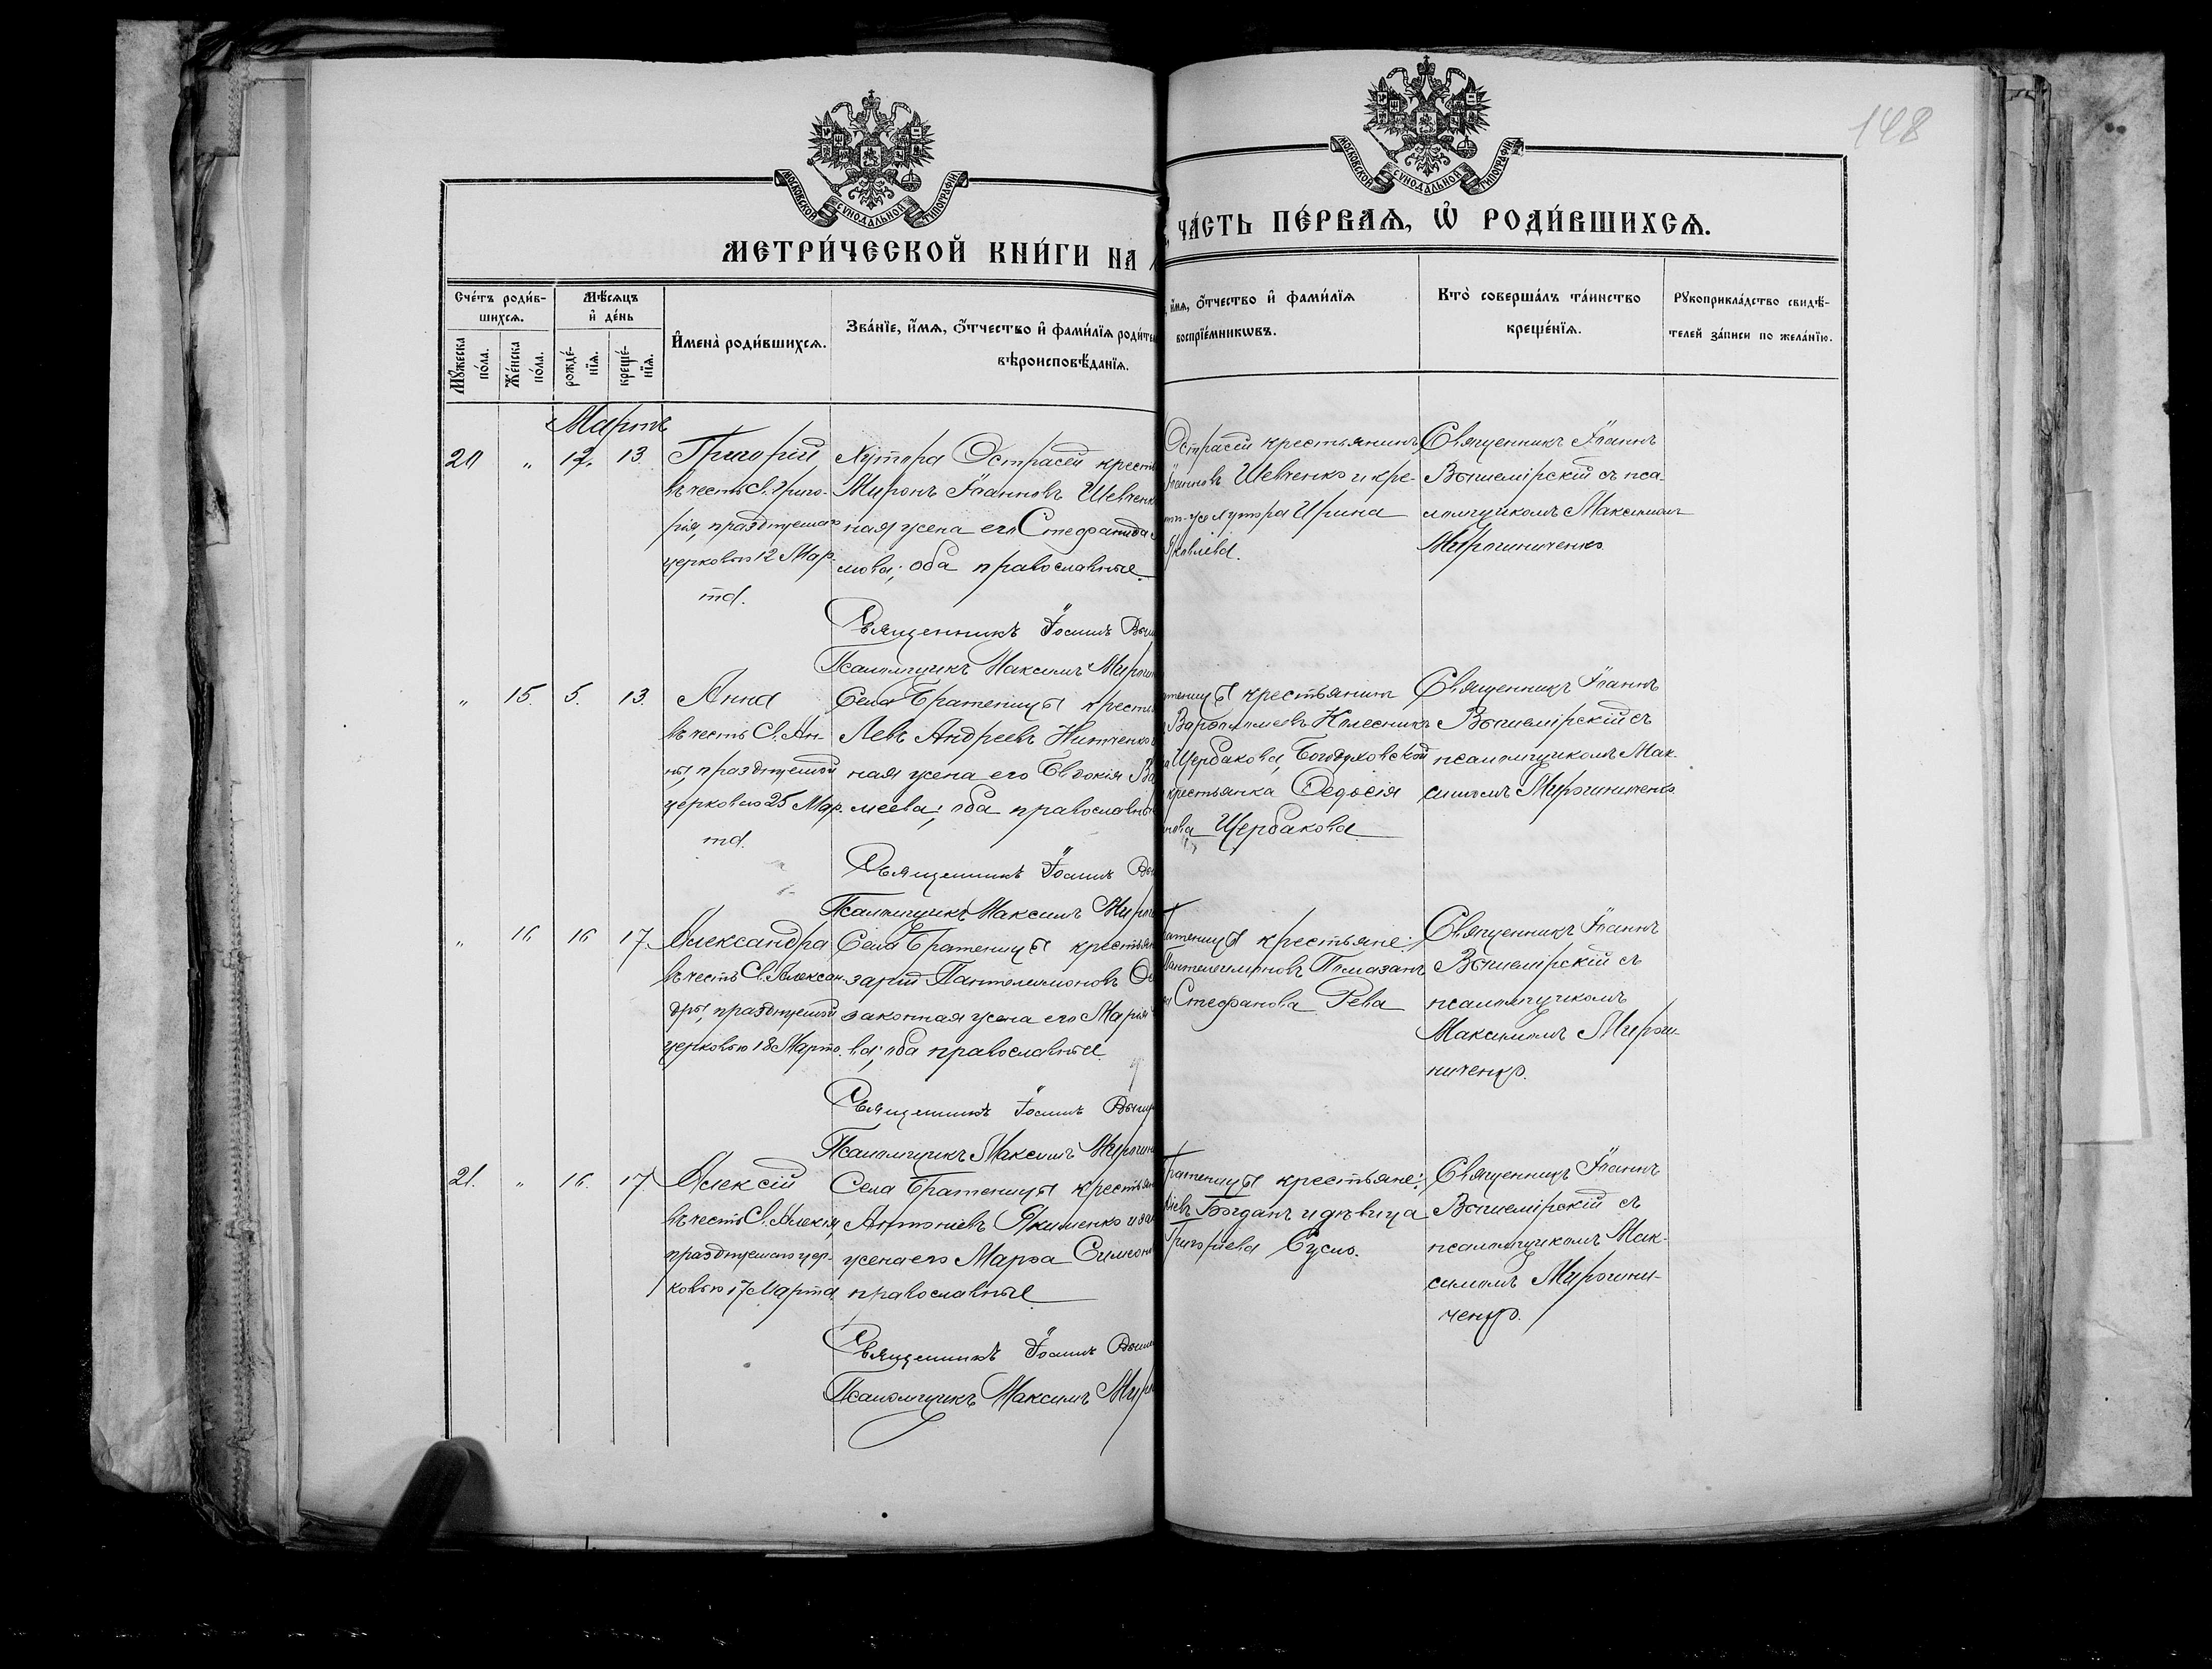 148
МОСКОВСКОЙ СѴНОДАЛЬНОЙ ТИПОГРАФІИ
МОСКОВСКОЙ СѴНОДАЛЬНОЙ ТИПОГРАФІИ
МЕТРИ́ЧЕСКОЙ КНИ́ГИ НА
ЧА́СТЬ ПЕ́РВАѦ, Ѽ РОДИ́ВШИХСѦ.
Сче́тъ роди́в-
шихсѧ.
Мꙋ́жеска по́ла.
Же́нска по́ла.
Мѣ́сѧцъ
и҆ де́нь
рожде́-
нїѧ.
креще́-
нїѧ.
И҆мена̀ роди́вшихсѧ.
Зва́нїе, и҆́мѧ, ѻ҆́тчество и҆ фами́лїѧ роди́те
вѣроисповѣ́данїѧ.
и҆́мѧ, ѻ҆́тчество и҆ фами́лїѧ
воспрїе́мникѡвъ.
Кто̀ соверша́лъ та́инство
креще́нїѧ.
Рꙋкоприкла́дство свидѣ́-
телей за́писи по жела́нїю.
Мартъ
20 " 12. 13.
Григорій
въ честь Св. Григо-
рія, празднуемаго
церковью 12 Мар-
та.
Хутора Острасей крест
Миронъ Іоанновъ Шевченк
ная жена его Стефанида
мова; оба православные.
Священникъ Іоаннъ
Псаломщикъ Максимъ
Острасей крестьянинъ
Іоанновъ Шевченко и кре-
хутора Ирина
Яковлева.
Священникъ Іоаннъ
Вышемірскій съ пса-
ломщикомъ Максимомъ
Мирошниченко.
" 15. 5. 13.
Анна
въ честь Св. Ан-
ны, празднуемой
церковью 25 Мар-
та.
Села Братеницы крест
Левъ Андреевъ Нитченко
ная жена его Евдокія Ва
меева; оба православны
Священникъ Іоаннъ
Псаломщикъ Максимъ
крестьянинъ
Варфоломеевъ Колесникъ
Щербакова, Богодуховской
крестьянка Федосія
Щербакова
Священникъ Іоаннъ
Вышемірскій съ
псаломщикомъ Мак-
симомъ Мирошниченко.
" 16 16 17.
Александра
въ честь Св. Алексан-
дры, празднуемой
церковью 18 Марта.
Села Братеницы крестьян
зарій Пантелеимоновъ
законная жена его Марія
ва; оба православные.
Священникъ Іоаннъ
Псаломщикъ Максимъ
крестьяне:
Пантелеимоновъ Помазанъ
Стефанова Рева
Священникъ Іоаннъ
Вышемірскій съ
псаломщикомъ
Максимомъ Мирош-
ниченко.
21. " 16. 17
Алексій
въ честь Св. Алексія,
празднуемаго цер-
ковью 17 Марта.
Села Братеницы крестьян
Антоніевъ Якименко и зак
жена его Марфа Симеон
православные
Священникъ Іоаннъ
Псаломщикъ Максимъ
Братеницы крестьяне:
Богданъ и дѣвица
Григорьева Сусло.
Священникъ Іоаннъ
Вышемірскій съ
псаломщикомъ Мак-
симомъ Мирошни-
ченко.